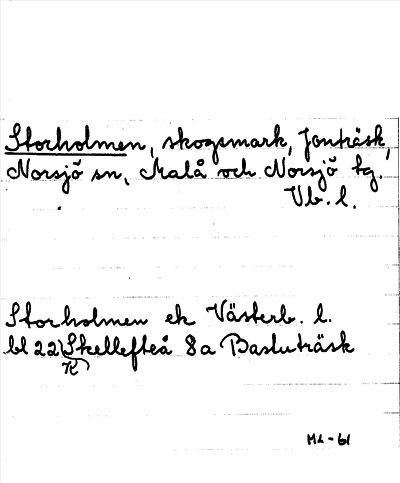 Storholmen, skogsmark, Jonträsk,
Norsjö sn, Malå och Norsjö tg.
Vb. l.
Storholmen ek Västerb. l.
bl 22 Skellefteå 8a Bastuträsk
K
ML-61